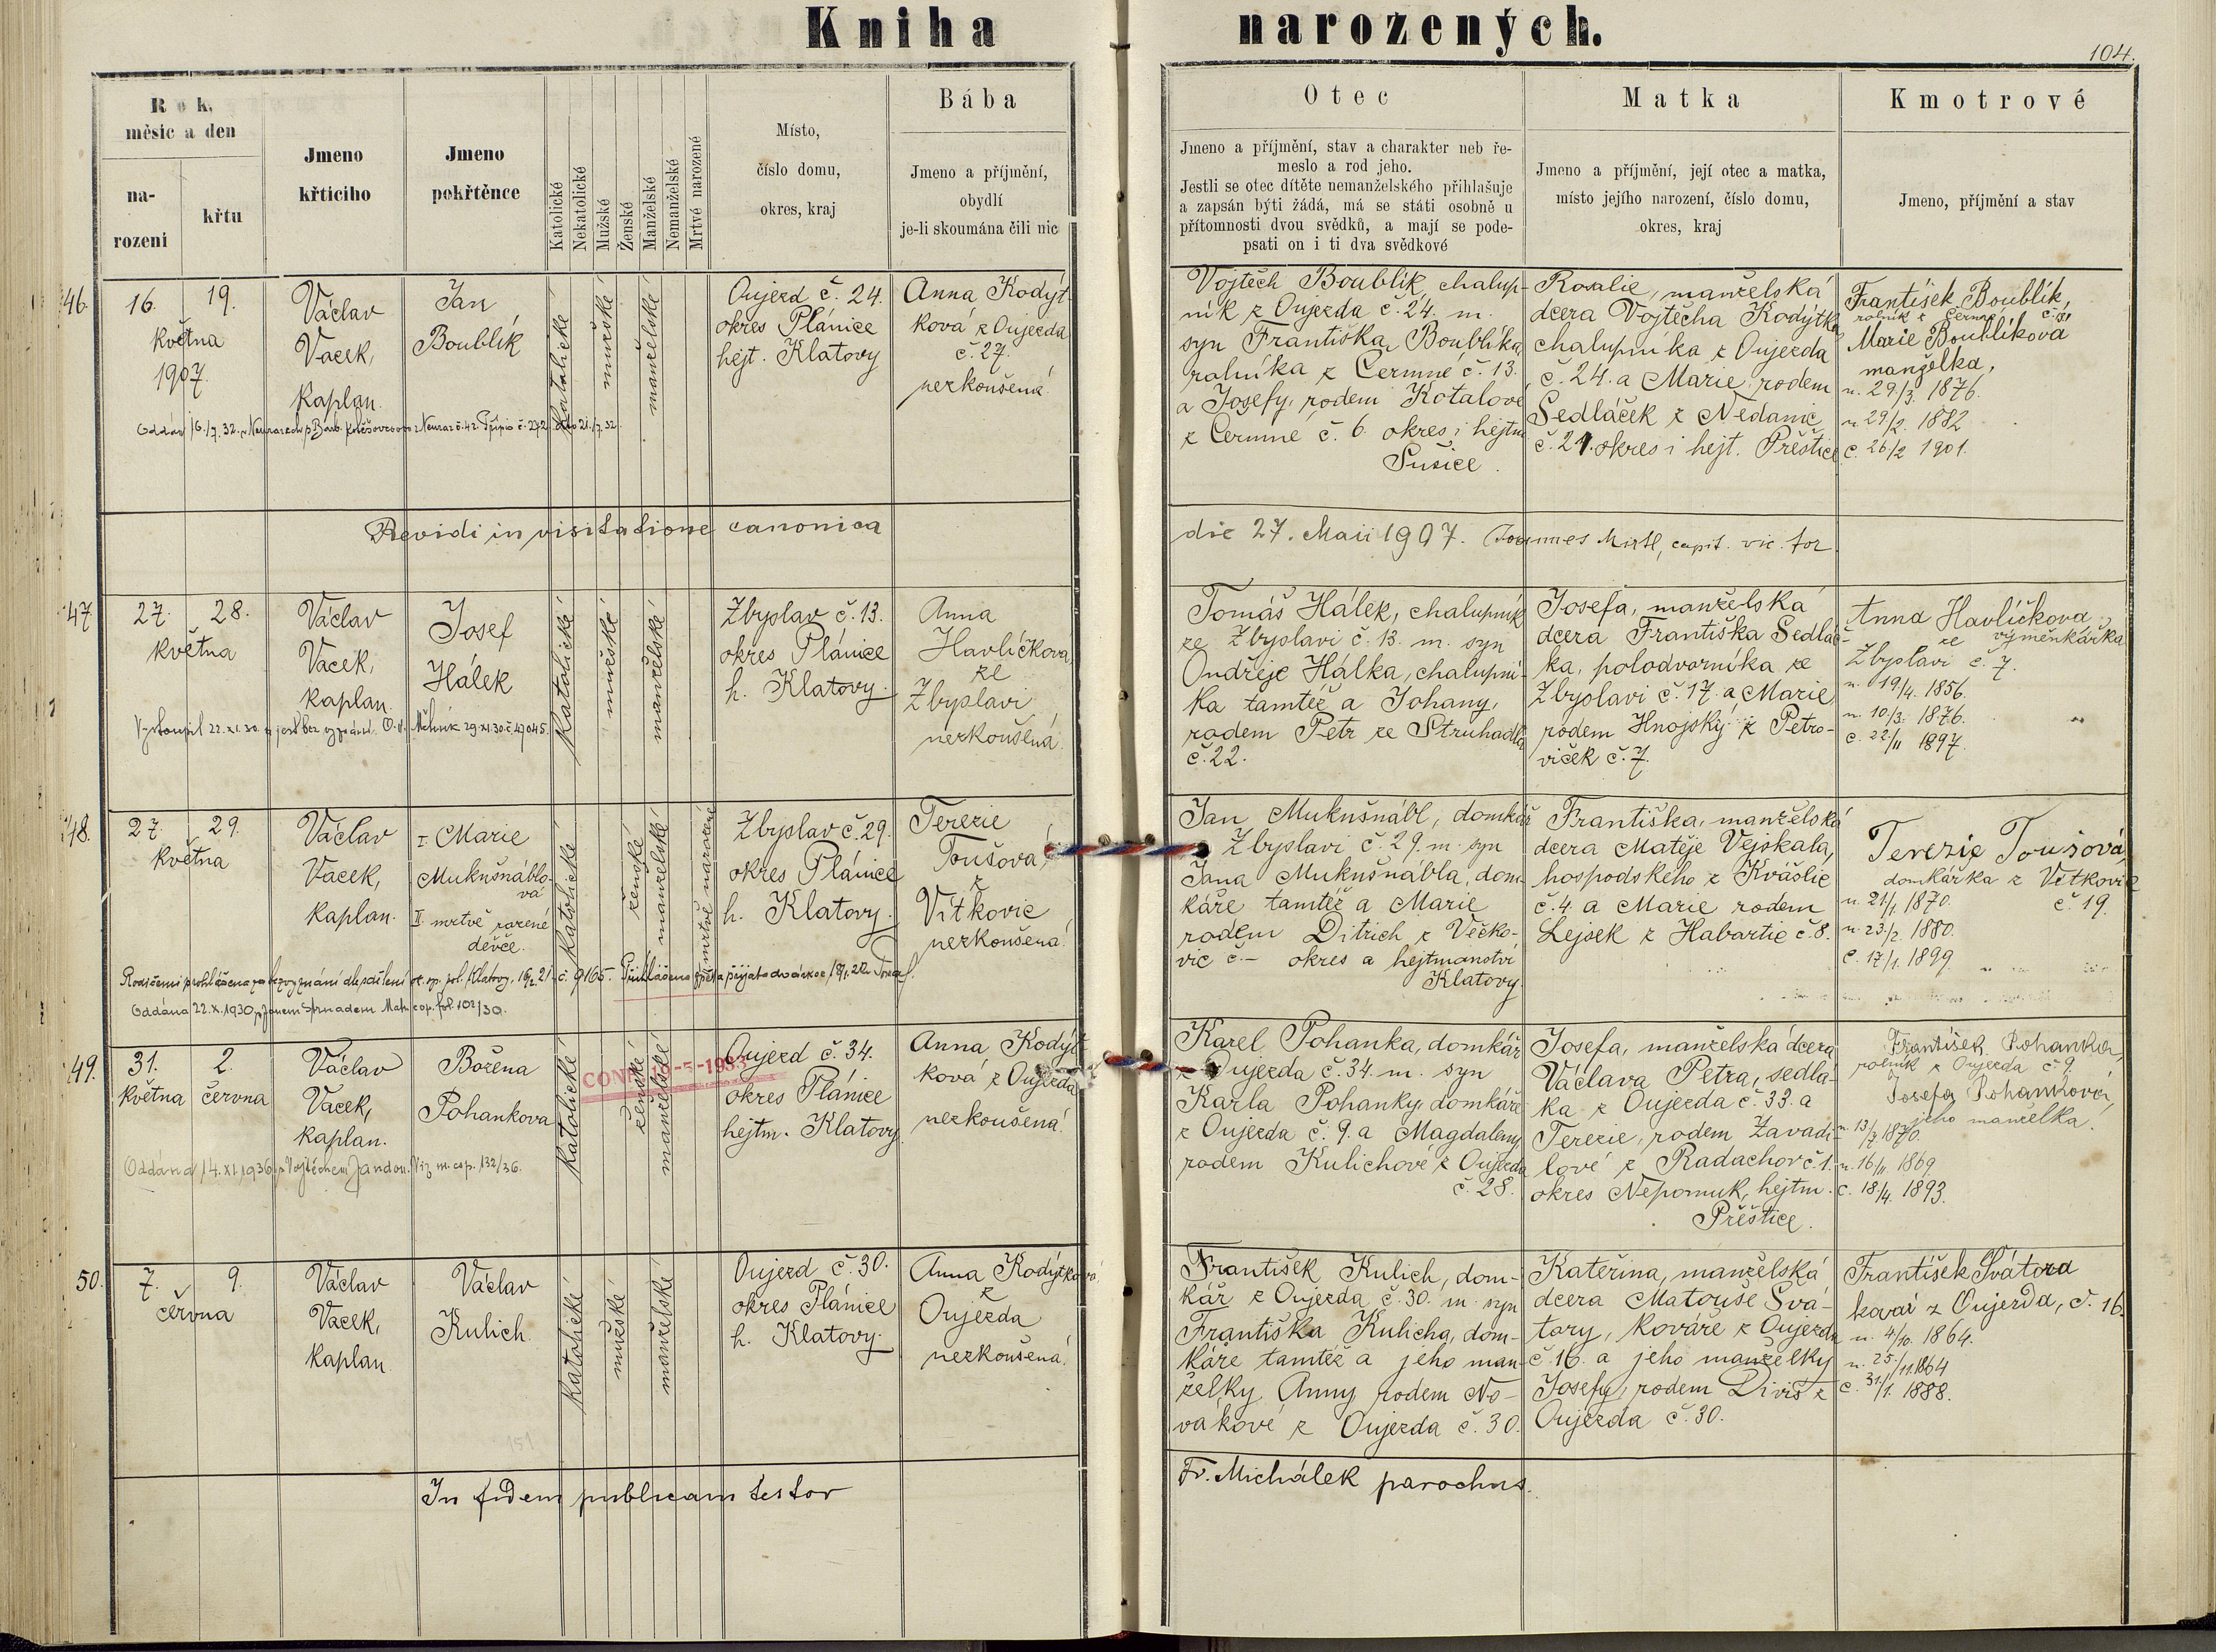 Kniha narozených.
104.
Rok,
měsíc a den
na-
rozeni
křtu
Jmeno
křticiho
Jmeno
pokřtěnce
Katolické
Nekatolické
Mužské
Ženské
Manželské
Nemanželské
Mrtvé narozené
Místo,
číslo domu,
okres, kraj
Bába
Jmeno a příjmění,
obydlí
je-li skoumána čili nic
Otec
Jmeno a příjmění, stav a charakter neb ře-
meslo a rod jeho.
Jestli se otec dítěte nemanželského přihlašuje
a zapsán býti žádá, má se státi osobně u
přítomnosti dvou svědků, a mají se pode-
psati on i ti dva svědkové
Matka
Jmeno a příjmění, její otec a matka,
místo jejího narození, číslo domu,
okres, kraj
Kmotrové
Jmeno, příjmění a stav
46.
16. 19.
května
1907.
Václav
Vacek,
kaplan.
Jan
Boublík
katolické
mužské
manželské
Oujezd č. 24.
okres Plánice
hejt. Klatovy
Anna Kodýt-
ková z Oujezda
č. 27.
nezkoušená
Vojtěch Boublík, chalup-
ník z Oujezda č. 24. m.
syn Františka Boublíka,
rolníka z Čermné č. 13.
a Josefy, rodem Kotalové
z Čermné č. 6. okres i hejtm.
Sušice.
Rosalie, manželská
dcera Vojtěcha Kodýtka,
chalupníka z Oujezda
č. 24. a Marie, rodem
Sedláček z Nedanic
č. 21. okres i hejt. Přeštice
František Boublík,
rolník z Čermné
Marie Boublíková
manželka,
n. 29/3. 1876.
n. 29/2. 1882
c. 26/2 1901.
Revidi in visitatione canonica
die 27. Maii 1907. Joannes Mirtl, capit. vic. for.
47.
27. 28.
května
Václav
Vacek,
kaplan.
Josef
Hálek
katolické
mužské
manželské
Zbyslav č. 13.
okres Plánice
h. Klatovy.
Anna
Havlíčkova
ze
Zbyslavi
nezkoušená.
Vystoupil 22. XI. 30. a jest bez vyznání. O. ú. Mělník 29. XI. 30. č. 47045.
Tomáš Hálek, chalupník
ze Zbyslavi č. 13. m. syn
Ondřeje Hálka, chalupní-
ka tamtéž a Johany,
rodem Petr ze Struhadla
č. 22.
Josefa, manželská
dcera Františka Sedláč-
ka, polodvorníka ze
Zbyslavi č. 17. a Marie
rodem Hnojský z Petro-
viček č. 7.
Anna Havlíčkova
výměnkářka
ze
Zbyslavi č. 7.
n. 19/4. 1856.
n. 10/3. 1876.
c. 22/11 1897.
48.
27. 29.
května
Václav
Vacek,
kaplan.
I. Marie
Mukušnáblo-
vá
II. mrtvě rozené
děvče.
katolické
ženské
manželské
mrtvě narozené
Zbyslav č. 29.
okres Plánice
h. Klatovy.
Terezie
Toušova,
z
Vítkovic
nezkoušená.
Oddána 22. X. 1930
Jan Mukušnábl, domkář
z Zbyslavi č. 29. m. syn
Jana Mukušnábla, dom-
káře tamtéž a Marie
rodem Ditrich z Věčko-
vic č. – okres a hejtmanství
Klatovy.
Františka, manželská
dcera Matěje Vejskala,
hospodského z Kvášlic
č. 4. a Marie rodem
Lejsek z Habartic č. 8.
Terezie Toušová,
domkářka z Vítkovic
č. 19.
n. 21/1. 1870.
n. 23/2. 1880.
c. 17/1. 1899.
49.
31. 2.
května června
Václav
Vacek,
kaplan.
Božena
Pohankova
katolické
ženské
manželské
Oujezd č. 34.
okres Plánice
hejtm. Klatovy.
Anna Kodýt-
ková z Oujezda
nezkoušená.
Oddána 14. XI. 1936 s Vojtěchem Jandou. Viz m. cop. 132/36.
Karel Pohanka, domkář
z Oujezda č. 34. m. syn
Karla Pohanky, domkáře
z Oujezda č. 9. a Magdaleny
rodem Kulichove z Oujezda
č. 28.
Josefa, manželská dcera
Václava Petra, sedlá-
ka z Oujezda č. 33. a
Terezie, rodem Zavadi-
lové z Radachov č. 1.
okres Nepomuk, hejtm.
Přeštice.
František Pohanka,
rolník z Oujezda č. 9.
Josefa Pohanková,
jeho manželka.
n. 13/7 1870.
n. 16/11. 1869.
c. 18/4. 1893.
50.
7. 9.
června
Václav
Vacek,
kaplan
Václav
Kulich.
katolické
mužské
manželské
Oujezd č. 30.
okres Plánice
h. Klatovy.
Anna Kodýtkova
z
Oujezda
nezkoušená.
František Kulich, dom-
kář z Oujezda č. 30. m. syn
Františka Kulicha, dom-
káře tamtéž a jeho man-
želky Anny rodem No-
vákové z Oujezda č. 30.
Kateřina, manželská
dcera Matouše Svá-
tory, kováře z Oujezda
č. 16. a jeho manželky
Josefy, rodem Diviš z
Oujezda č. 30.
František Svátora
kovář z Oujezda, č. 16.
n. 4/10. 1864.
n. 25./11. 1864
c. 31/1. 1888.
151
In fidem publicam testor
Fr. Michálek parochus.